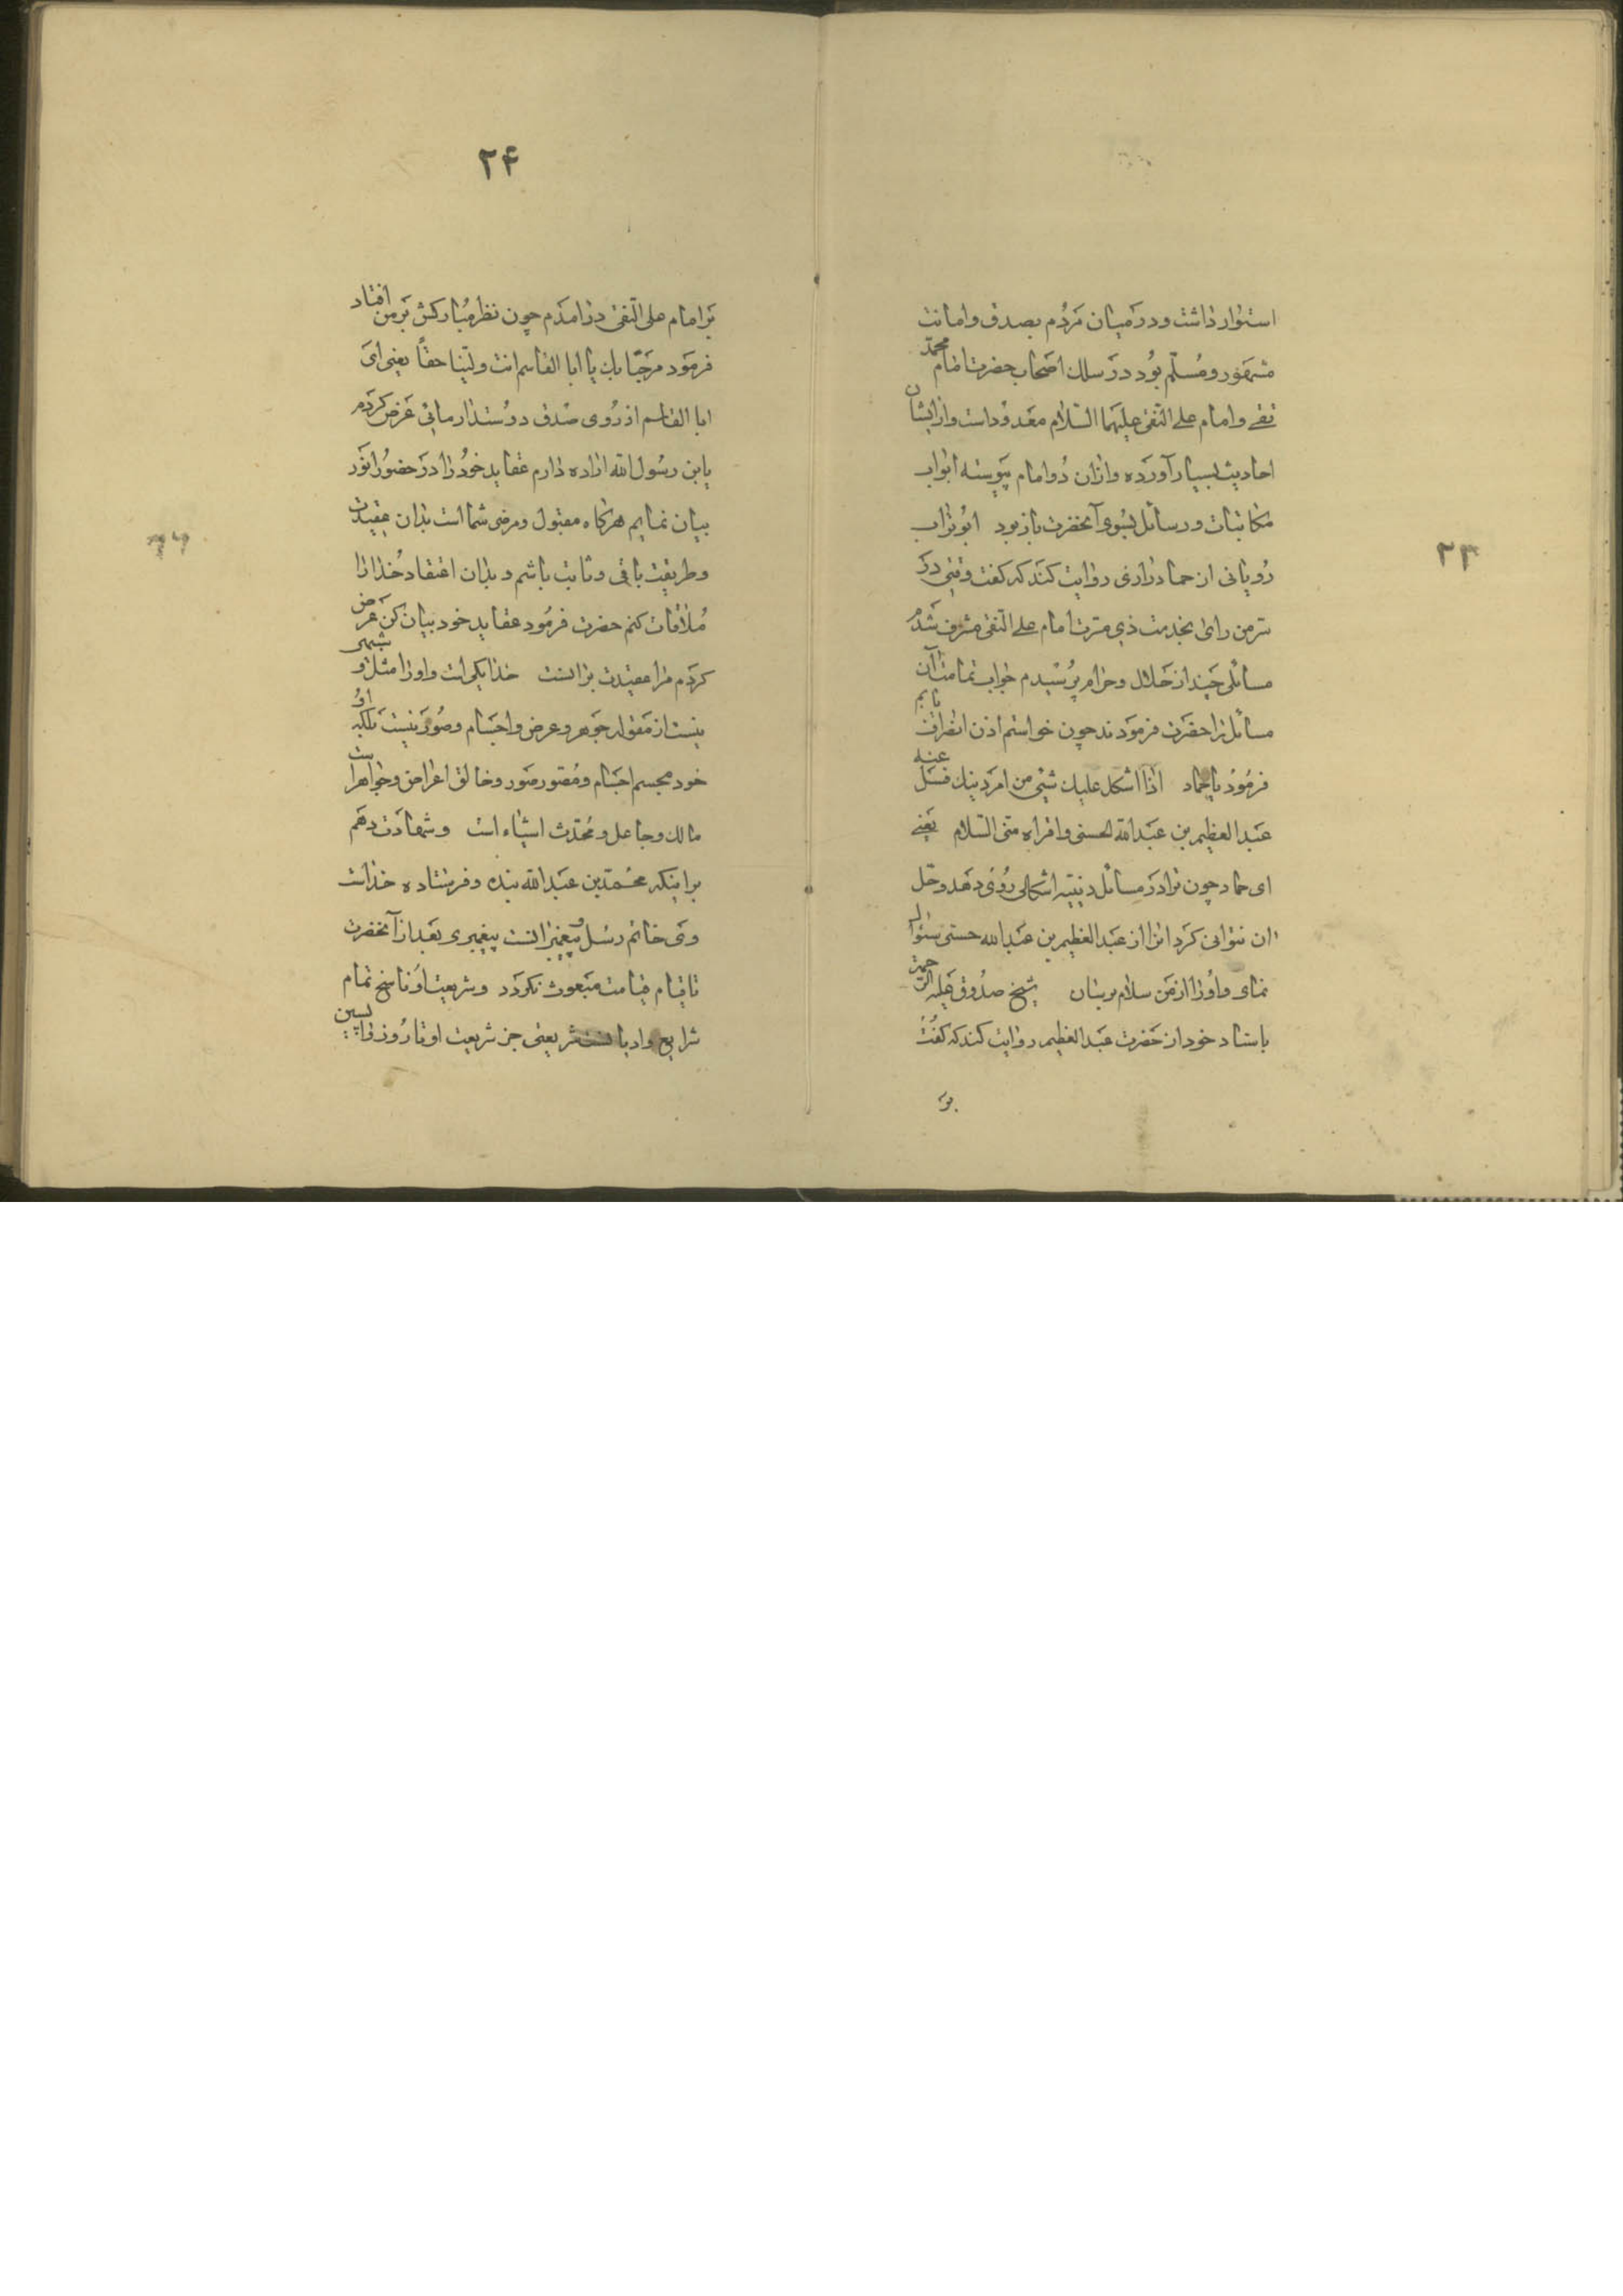 ۲۳
استوار داشت و در میان مردم بصدق و امانت
مشهور و مسلم بود در سلك اصحاب حضرت امام محمد
تقی و امام علی النقی علیهما السلام معدود است و از ایشان
احادیث بسیار آورده و از آن دو امام پیوسته ابواب
مکاتبات و رسائل بسوی آنحضرت باز بود ابو تراب
رویانی از حماد رازی روایت کند که گفت وقتی در
سرمن رای بخدمت ذی مسرت امام علی النقی مشرف شدم
مسائلی چند از حلال و حرام پرسیدم جواب تمامت آن
مسائل را حضرت فرمودند چون خواستم اذن انصراف یابم
فرمود یا حماد اذا اشکل علیك شیئ من امر دینك فسئل عنه
عبد العظیم بن عبد الله الحسنی و اقراه منی السلام یعنی
ای حماد چون ترا در مسائل دینیه اشکالی روی دهد و حل
ان نتوانی کرد انرا از عبد العظیم بن عبد الله حسنی سئوال
نمای و اورا از من سلام برسان شیخ صدوق علیه الرحمة
باسناد خود از حضرت عبد العظیم روایت کند که گفت
بر
۲۴
بر امام علی النقی درامدم چون نظر مبارکش بر من افتاد
فرمود مرحبا بك یا ابا القاسم انت ولینا حقاً یعنی ای
ابا القاسم از روی صدق دوستدار مائی عرض کردم
یابن رسول الله اراده دارم عقاید خود را در حضور انور
بیان نمایم هرگاه مقبول و مرضی شما است بدان عقیدت
و طریقت باقی و ثابت باشم و بدان اعتقاد خدا را
ملاقات کنم حضرت فرمود عقاید خود بیان کن عرض
کردم مرا عقیدت برانست خدا یکی است و اورا مثل و شبهی
نیست از مقوله جوهر و عرض و اجسام و صور نیست بلکه او
خود مجسم اجسام و مصور صور و خالق اعراض و جواهر است
مالك و جاعل و محدث اشیاء است و شهادت دهم
براینکه محمد بن عبد الله بنده و فرستاده خداست
وی خاتم رسل و پیغمبرانست پیغمبری بعد از آنحضرت
تا قیام قیامت مبعوث نگردد و شریعت او ناسخ تمام
شرایع و ادیانست شریعتی جز شریعت او تا روز